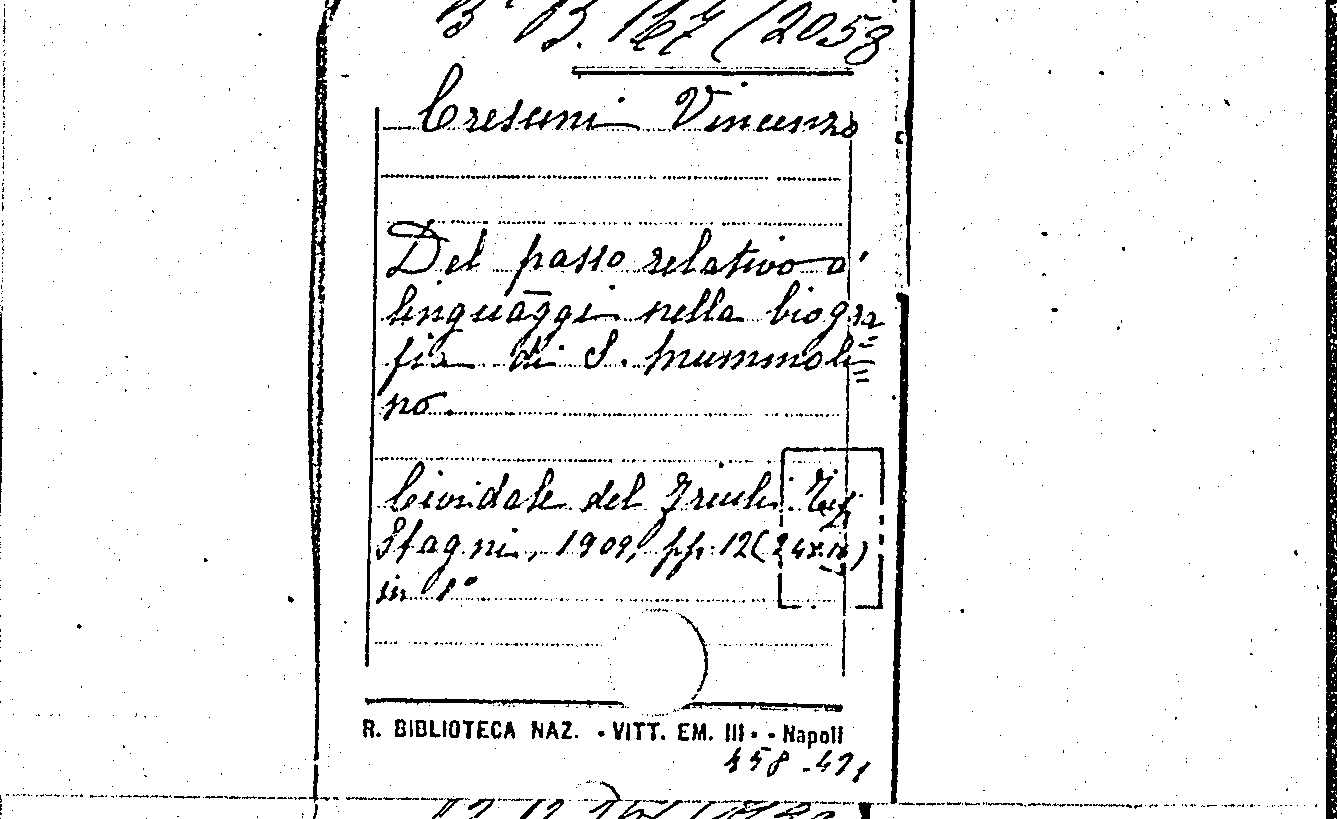 B. 167 (2058
Crescini Vincenzo
Del passo relativo a'
linguaggi nella biogra
fia di S. Mummoli
no.
Cividale del Friuli. Tip.
Stagni, 1909, pp. 12 (24x
in 8°
R. BIBLIOTECA NAZ. - VITT. EM. III - - Napoli
458-471